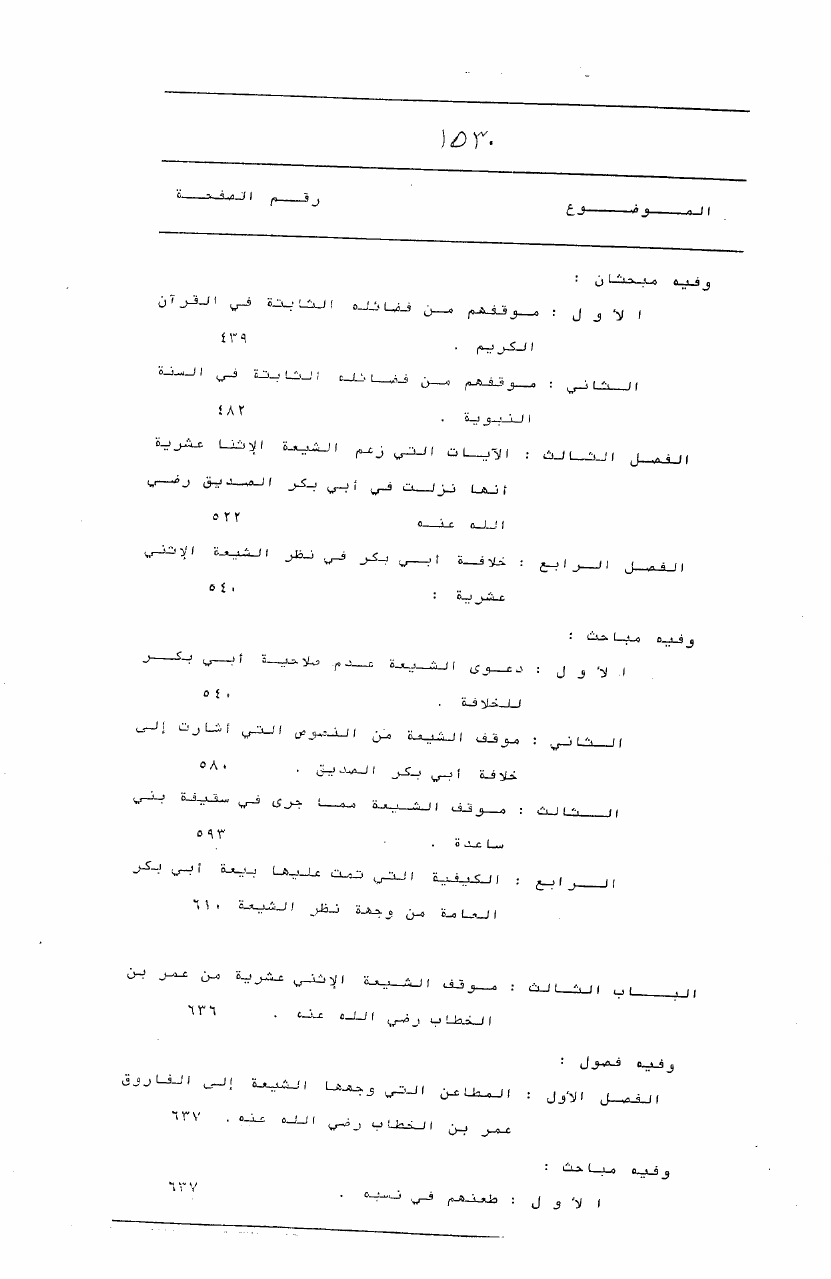 ١٥٣٠
الموضوع رقم الصفحة
وفيه مبحثان :
الأول : موقفهم من فضائله الثابتة في القرآن
الكريم . ٤٣٩
الثاني : موقفهم من فضائله الثابتة في السنة
النبوية . ٤٨٢
الفصل الثالث : الآيات التي زعم الشيعة الإثنا عشرية
أنها نزلت في أبي بكر الصديق رضي
الله عنه ٥٢٢
الفصل الرابع : خلافة أبي بكر في نظر الشيعة الإثني
عشرية : ٥٤٠
وفيه مباحث :
الأول : دعوى الشيعة عدم صلاحية أبي بكر
للخلافة . ٥٤٠
الثاني : موقف الشيعة من النصوص التي أشارت إلى
خلافة أبي بكر الصديق . ٥٨٠
الثالث : موقف الشيعة مما جرى في سقيفة بني
ساعدة . ٥٩٣
الرابع : الكيفية التي تمت عليها بيعة أبي بكر
العامة من وجهة نظر الشيعة ٦١٠
الباب الثالث : موقف الشيعة الإثني عشرية من عمر بن
الخطاب رضي الله عنه . ٦٣٦
وفيه فصول :
الفصل الأول : المطاعن التي وجهها الشيعة إلى الفاروق
عمر بن الخطاب رضي الله عنه . ٦٣٧
وفيه مباحث :
الأول : طعنهم في نسبه . ٦٣٧